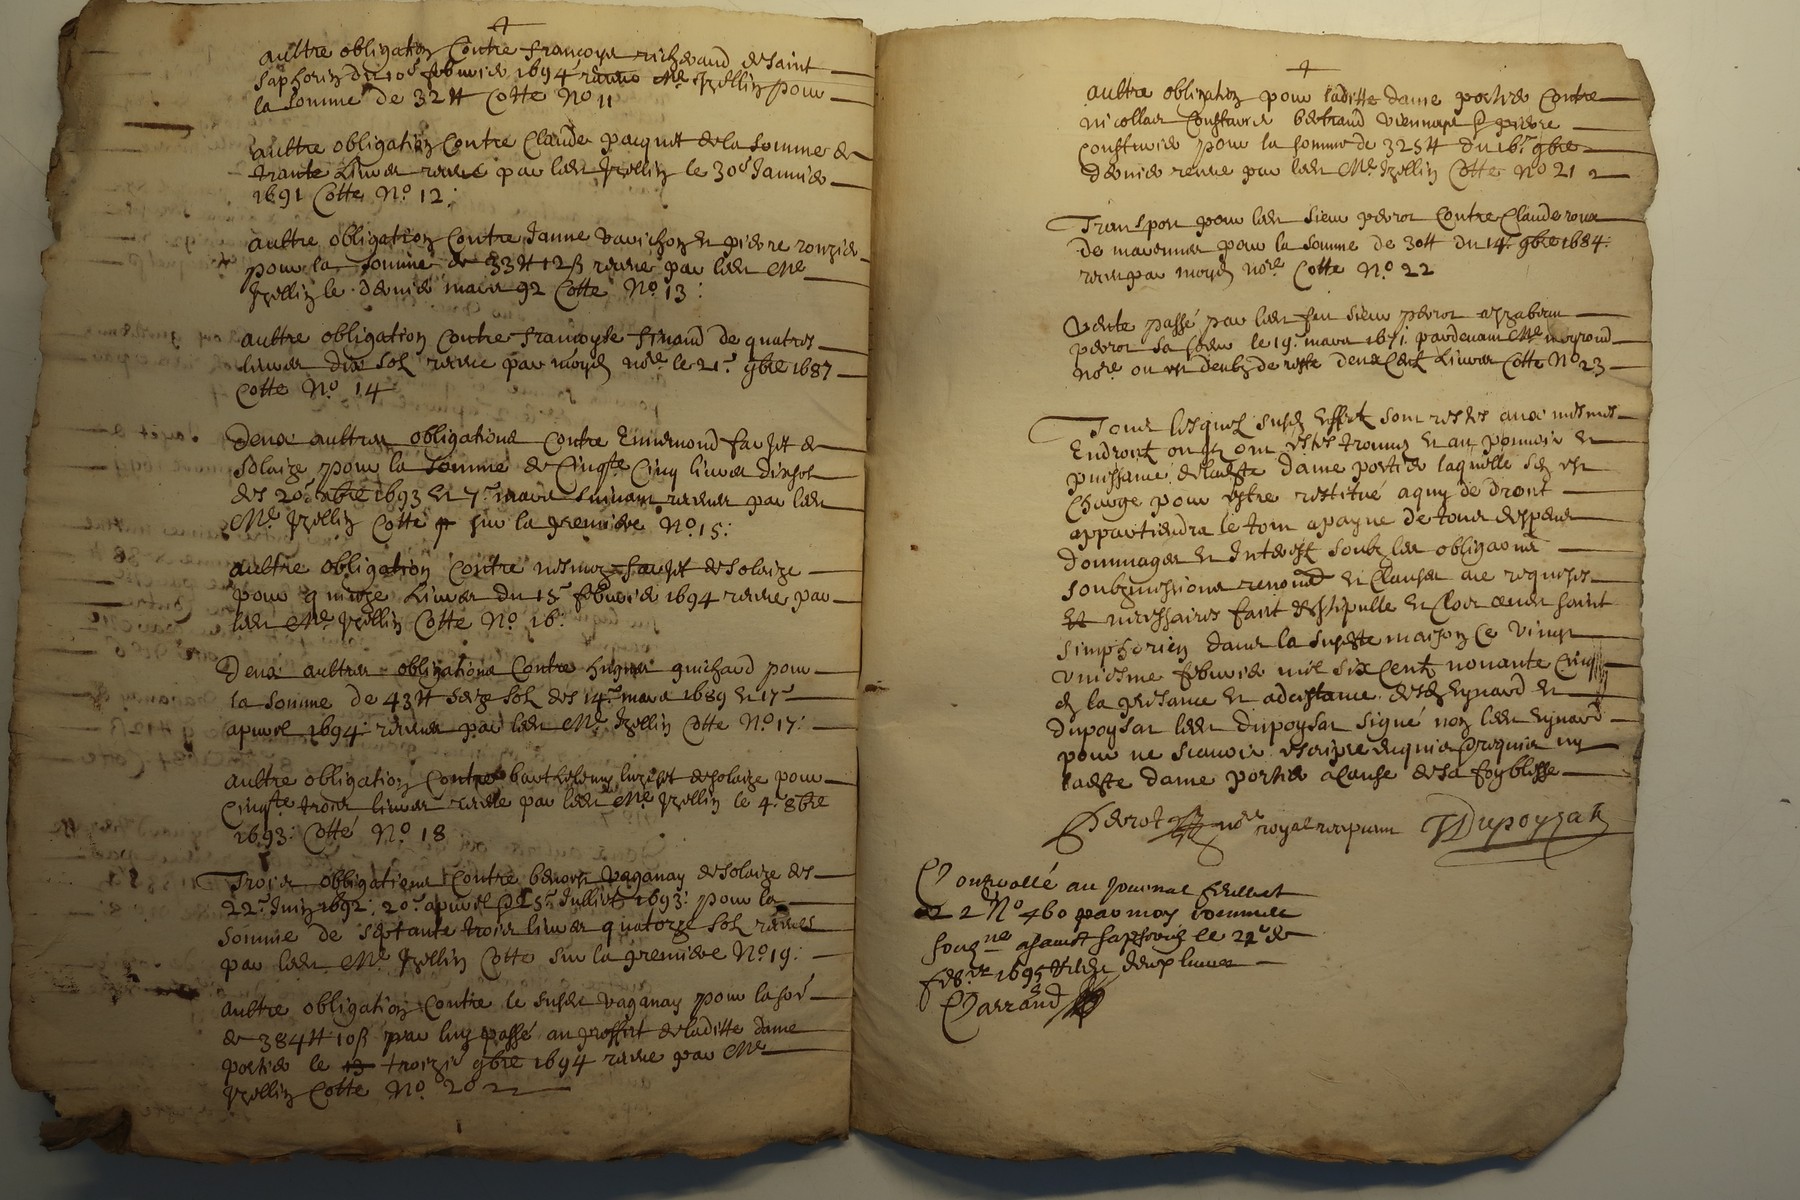 aultre obligation Contre francoyse richaud de saint
saphorin du 10e febvrier 1694 receue Me pour
la somme de 32 tt Cotte No 11
aultre obligation Contre Claude pacquet de la somme de
trante Livres receue par ledt le 30e Janvier
1691 Cotte No. 12:
aultre obligation Contre Janne et pierre
pour la somme de 33 tt 12 ß receue par ledt Me
le dernier mars 92 Cotte No. 13:
aultre obligation Contre francoyse finand de quatres
livres dix solz receue par moyd nore le 21e 9bre 1687
Cotte No. 14
Deux aultres obligations Contre Ennemond farjet de
solaize pour la somme de Cinqte Cinq livres dix solz
des 20e xbre 1693 et 7e mars suivant receues par ledt
Me Cotté sur la premiere No. 15:
aultre obligation Contre farjet de solaize
pour quinze Livres du 15e febvrier 1694 receue par
ledt Me Cotte No. 16:
Deux aultres obligations Contre hugues guichard pour
la somme de 43 tt seize solz des 14e mars 1689 et 17e
apvril 1694: receues par ledt Me Cotte No. 17:
aultre obligation Contre barthelemy de solaize pour
Cinqte trois livres receue par ledt Me le 4e 8bre
1693: Cotté No. 18
Trois obligations Contre benoist vaganay de solaize des
22e Juin 1692: 20e apvril & 25e Juillet 1693: pour la
somme de septante trois livres quatorze solz receues
par ledt Me Cotte sur la premiere No. 19:
aultre obligation Contre le susdt vaganay pour la some
de 384 tt 10 ß par luy passé au proffit de laditte dame
portier le 13 troizie 9bre 1694 receue par Me
Cotte No. 20
aultre obligation pour laditte dame portier Contre
nicollas bertrand & pierre
pour la somme de 325 tt du 16e 9bre
dernier receue par ledt Me Cotte No 21
Transport pour ledt sieur perrot Contre Claude
de marennes pour la somme de 30 tt du 14e 9bre 1684:
receu par moyd nore Cotte No. 22
Vente passé par ledt feu sieur perrot a Izabeau
perrot sa soeur le 19e mars 1671. pardevant Me
nore ou est deub de reste deux Cent Livres Cotte No 23
Tous lesquelz susd effectz sont restés aux mesmes
Endroitz ou ilz ont estes trouvés et au pouvoir et
puissance de ladte dame portier laquelle s'en est
Charge pour estre restitué a quy de droit
appartiendra le tout a payne de tous despens
dommages et Interestz soubz les obligaons
soubzmissions renond et Clauses a ce requises
et necessaires fait et stipullé et Clos aud saint
simphorien dans la susdte maison ce vingt
uniesme febvrier mil six cent nonante Cinq
en la presance et adcistance desd Eynard et
Dupoysat ledt Dupoysat signé non ledt Eynard
pour ne scavoir escripre enquis & requis ny
ladte dame portier a Cause de sa foyblesse
Perrot nore royal Dupoysat
Controllé au Journal feuillet
22 No 460 par moy commis
sousne a saint saphorin le 22e de
febr 1695 livres
Charrand